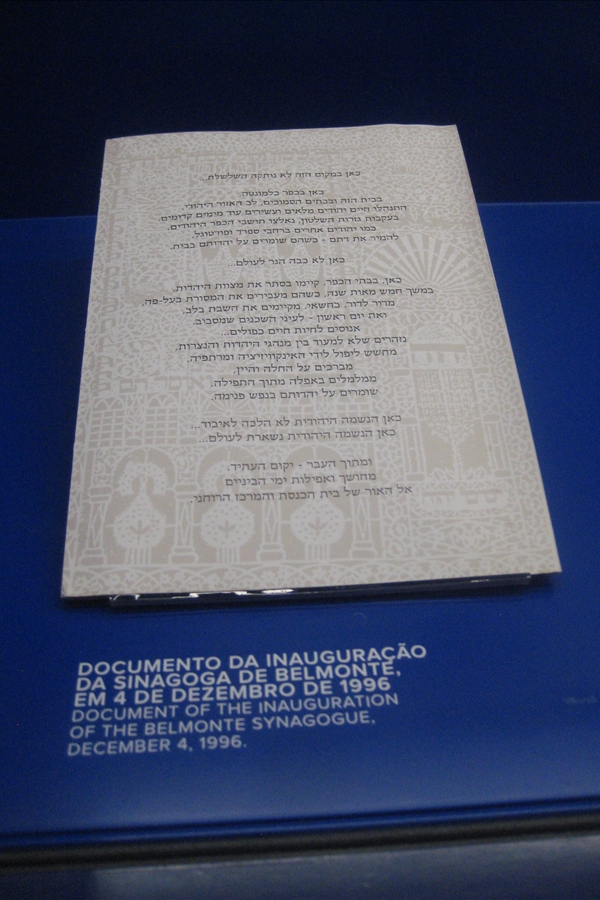 כאן במקום הזה לא נותקה השלשלת...
כאן בכפר בלמונטה
בבית הזה ובבתים הסמוכים, לב האזור היהודי,
התנהלו חיים יהודים מלאים ועשירים עוד מימים קדומים.
בעקבות גזרות השלטון, נאלצו תושבי הכפר היהודים,
כמו יהודים אחרים ברחבי ספרד ופורטוגל
להמיר את דתם - כשהם שומרים על יהדותם בבית.
כאן לא כבה הנר לעולם...
כאן, בבתי הכפר, קיימו בסתר את מצוות היהדות,
במשך חמש מאות שנה, כשהם מעבירים את המסורת בעל-פה,
מדור לדור, בחשאי, מקיימים את השבת בלב,
ואת יום ראשון - לעיני השכנים שמסביב.
אנוסים לחיות חיים כפולים...
נזהרים שלא למעוד בין מנהגי היהדות והנצרות,
מחשש ליפול לידי האינקוויזיציה ומרתפיה,
מברכים על החלה והיין,
ממלמלים באפלה מתוך התפילה,
שומרים על יהדותם בנפש פנימה.
כאן הנשמה היהודית לא הלכה לאיבוד...
כאן הנשמה היהודית נשארת לעולם...
ומתוך העבר - יקום העתיד,
מחושך ואפילות ימי הביניים
אל האור של בית הכנסת והמרכז הרוחני.
DOCUMENTO DA INAUGURAÇÃO
DA SINAGOGA DE BELMONTE,
EM 4 DE DEZEMBRO DE 1996
DOCUMENT OF THE INAUGURATION
OF THE BELMONTE SYNAGOGUE,
DECEMBER 4, 1996.